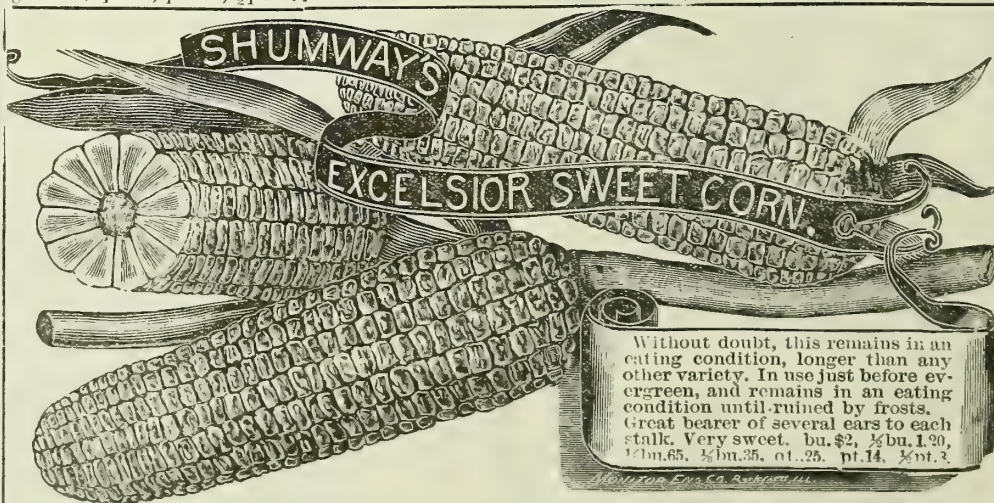 SHUMWAY'S
EXCELSIOR SWEET CORN
Without doubt, this remains in an
eating condition, longer than any
other variety. In use just before ev-
ergreen, and remains in an eating
condition until ruined by frosts.
Great bearer of several ears to each
stalk. Very sweet. bu. $2, ½bu. 1.20,
¼bu.65, ⅛bu.35, qt..25, pt.14,
MONITOR ENG CO. Rockford, ILL.